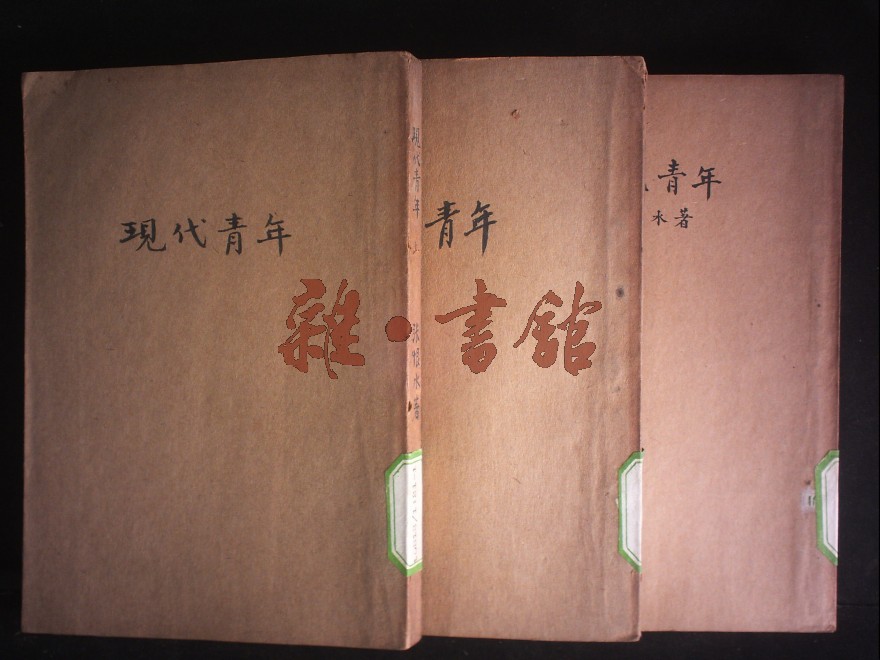 現代青年
現代青年 上
張恨水著
青年
青年
水著
雜·書館